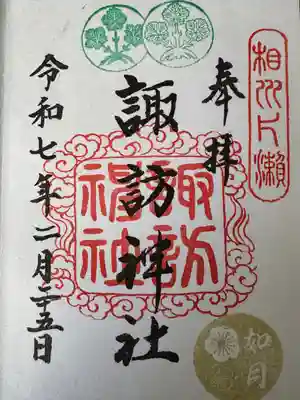 相州片瀬
奉拝
諏訪神社
諏訪神社
令和七年二月二十五日
如月